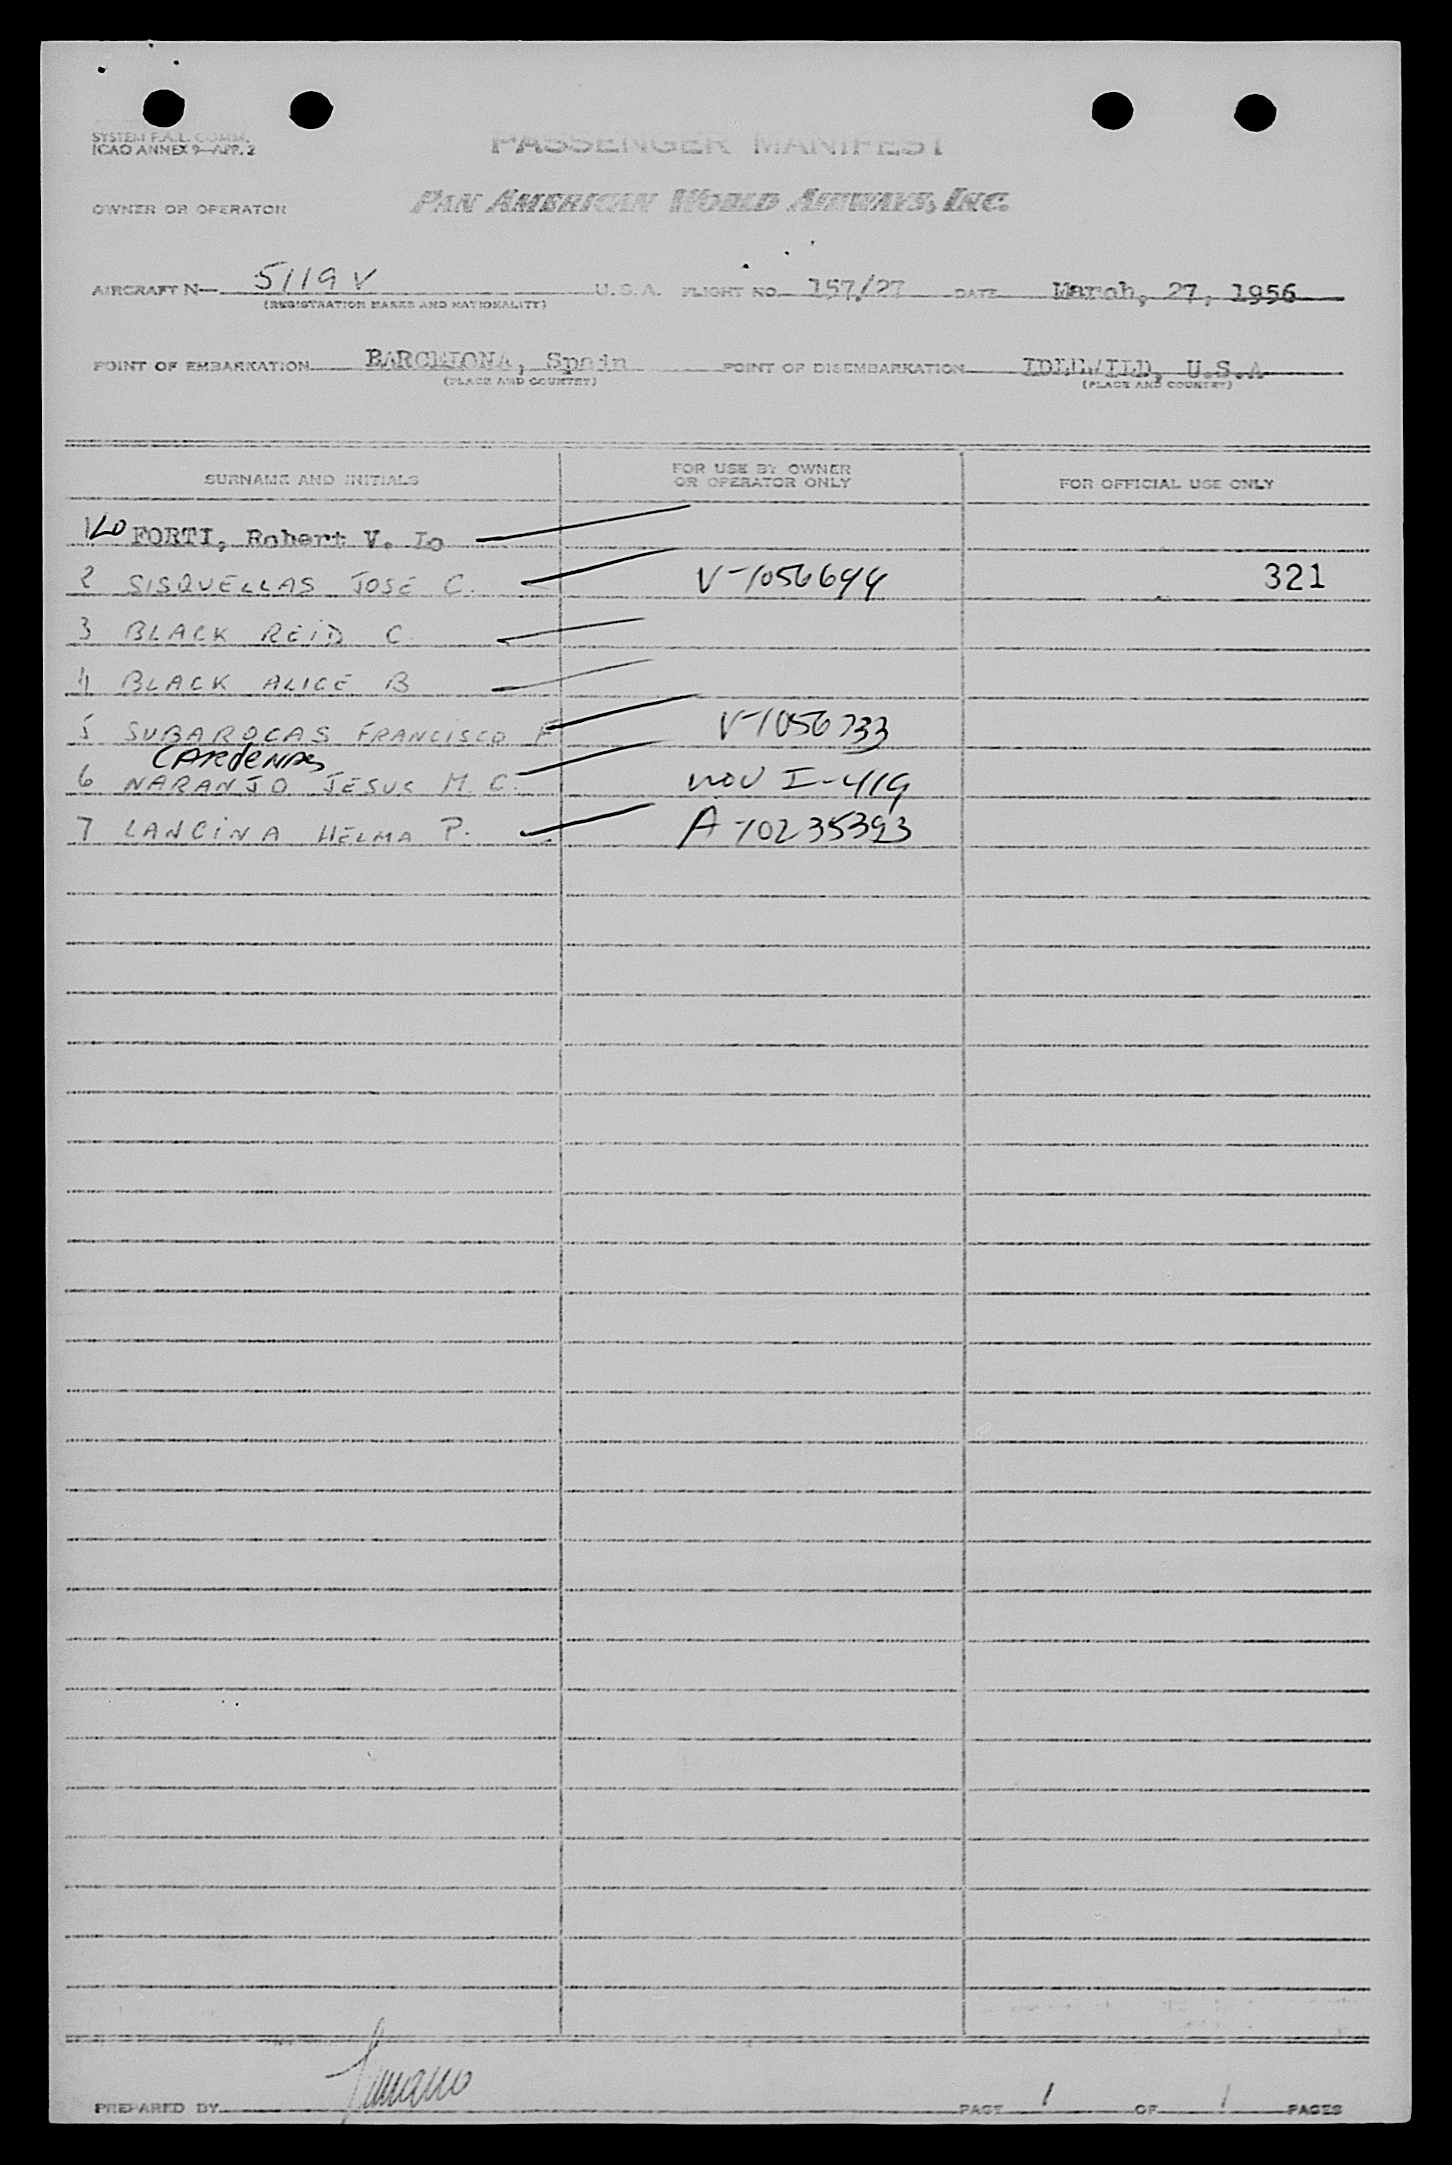 SYSTEM F.A.L. COMM.
ICAO ANNEX 9—APP. 2
PASSENGER MANIFEST
OWNER OR OPERATOR PAN AMERICAN WORLD AIRWAYS, INC.
AIRCRAFT N— 5119 V U.S.A. FLIGHT NO. 157/27 DATE March, 27, 1956
(REGISTRATION MARKS AND NATIONALITY)
POINT OF EMBARKATION BARCELONA, Spain POINT OF DISEMBARKATION IDELWILD, U.S.A
(PLACE AND COUNTRY) (PLACE AND COUNTRY)
SURNAME AND INITIALS FOR USE BY OWNER OR OPERATOR ONLY FOR OFFICIAL USE ONLY
1 LO FORTI, Robert V. Lo
2 SISQUELLAS JOSE C. V-1056644 321
3 BLACK REID C.
4 BLACK ALICE B
5 SUBAROCAS FRANCISCO F V-1056733
CARDENAS
6 NARANJO JESUS M. C. nov I-419
7 LANCINA HELMA P. A-10235393
PREPARED BY PAGE 1 OF 1 PAGES